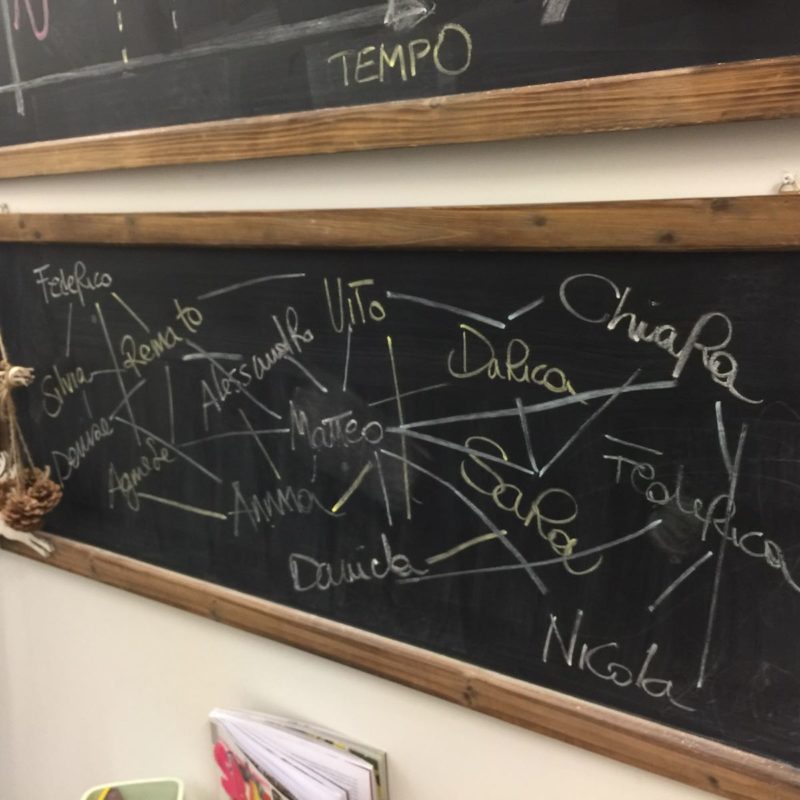 TEMPO
Federico
Renato
Vito
Chiara
Silvia
Alessandro
Darica
Denise
Matteo
Agnese
Sara
Federica
Anna
Daniela
Nicola